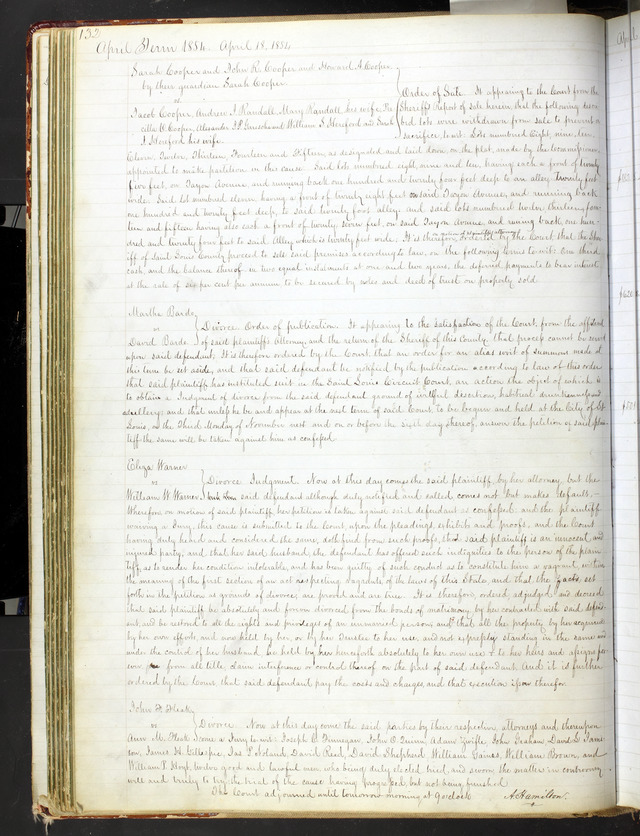 132
April Term 1854. April 18, 1854
Sarah Cooper and John R. Cooper and Howard A. Cooper
by their guardian Sarah Cooper
vs
Jacob Cooper, Andrew J. Randall, Mary Randall his wife,
O. Cooper, Alexander William S. Hereford and
J. Hereford his wife
Order of Sale. It appearing to the Court from the
Sheriff's Report of sale herein, that the following
bed lots were withdrawn from sale to prevent a
sacrifice, to wit: Lots numbered Eight, nine, ten,
Eleven, Twelve, Thirteen, Fourteen and Fifteen, as designated and laid down on the plat, made by the Commissioners
appointed to make partition in this cause. Said lots numbered eight, nine and ten, having each a front of twenty
five feet, on Avenue, and running back one hundred and twenty four feet deep to an alley twenty feet
wide. Said lot numbered eleven having a front of twenty eight feet on said Avenue, and running back
one hundred and twenty feet deep, to said twenty foot alley, and said lots numbered twelve thirteen four
teen and fifteen having also each a front of twenty seven feet, on said Avenue, and runing back one hun
dred and twenty four feet to said Alley which is twenty feet wide. It is therefore, ordered by the Court that the She
riff of Saint Louis County proceed to sell said premises according to law, on the following terms to wit: One third
cash and the balance thereof in two equal instalments at one and two years, the deferred payments to bear interest
at the rate of six per cent per annum to be secured by notes and deed of trust on property sold.
Martha Bards
vs
David Bards
Divorce. Order of publication. It appearing to the satisfaction of the Court, from the affidavit
of said plaintiffs Attorney, and the return of the Sheriff of this County, that process cannot be served
upon said defendant. It is therefore ordered by the Court that an order for an alias writ of summons made at
this term be set aside, and that said defendant be notified by the publication according to law of this order
that said plaintiff has instituted suit in the Saint Louis Circuit Court, an action the object of which is
to obtain a Judgment of divorce from the said defendant ground of wilful desertion, habitual drunkenness and
adultery; and that unless he be and appear at the next term of said Court, to be begun and held at the City of St
Louis, on the Third Monday of November next and on or before the sixth day thereof, answer the petition of said plain
tiff the same will be taken against him as confessed.
Eliza Warner
vs
William W. Warner
Divorce Judgment. Now at this day comes the said plaintiff, by her attorney, but the
said defendant although duly notified and called comes not but makes default.
Wherefore on motion of said plaintiff, her petition is taken against said defendant as confessed and the plaintiff
waiving a Jury, this cause is submitted to the Court, upon the pleadings, exhibits and proofs, and the Court
having duly heard and considered the same, doth find from such proofs, that said plaintiff is an innocent and
injured party, and that her said husband, the defendant has offered such indignities to the person of the plain
tiff, as to render her condition intolerable, and has been guilty of such conduct as to constitute him a vagrant, within
the meaning of the first section of an act respecting vagrants of the laws of this State, and that the facts, set
forth in the petition as grounds of divorce, are proved and are true. It is therefore, ordered, adjudged and decreed
that said plaintiff be absolutely and forever divorced from the bonds of matrimony, by her contracted with said defend
ant, and be restored to all the rights and privileges of an unmarried person and that all the property by her acquired
by her own efforts, and now held by her, or by her Trustee to her use, and not expressly standing in the name and
under the control of her husband be held by her henceforth absolutely to her own use & to her heirs and assigns for
ever, from all title, claim interference or control thereof on the part of said defendant. And it is further
ordered by the Court that said defendant pay the costs and charges, and that execution issue therefor.
John F. Fleak
vs
Ann M. Fleak
Divorce. Now at this day come the said parties by their respective attorneys and thereupon
come a Jury to wit: Joseph O. Finnegan, John C. Quinn, Adam John Graham, David L.
son, James H. Gillespie, Jas. Poland, David Reed, David Shepherd, William Gaines, William Brown, and
William P. Hoyt, twelve good and lawful men, who being duly elected, tried, and sworn, the matter in controversy
well and truly to try, the trial of the cause having progressed, but not being finished.
The Court adjourned until tomorrow morning at 9 oclock
A. Hamilton.